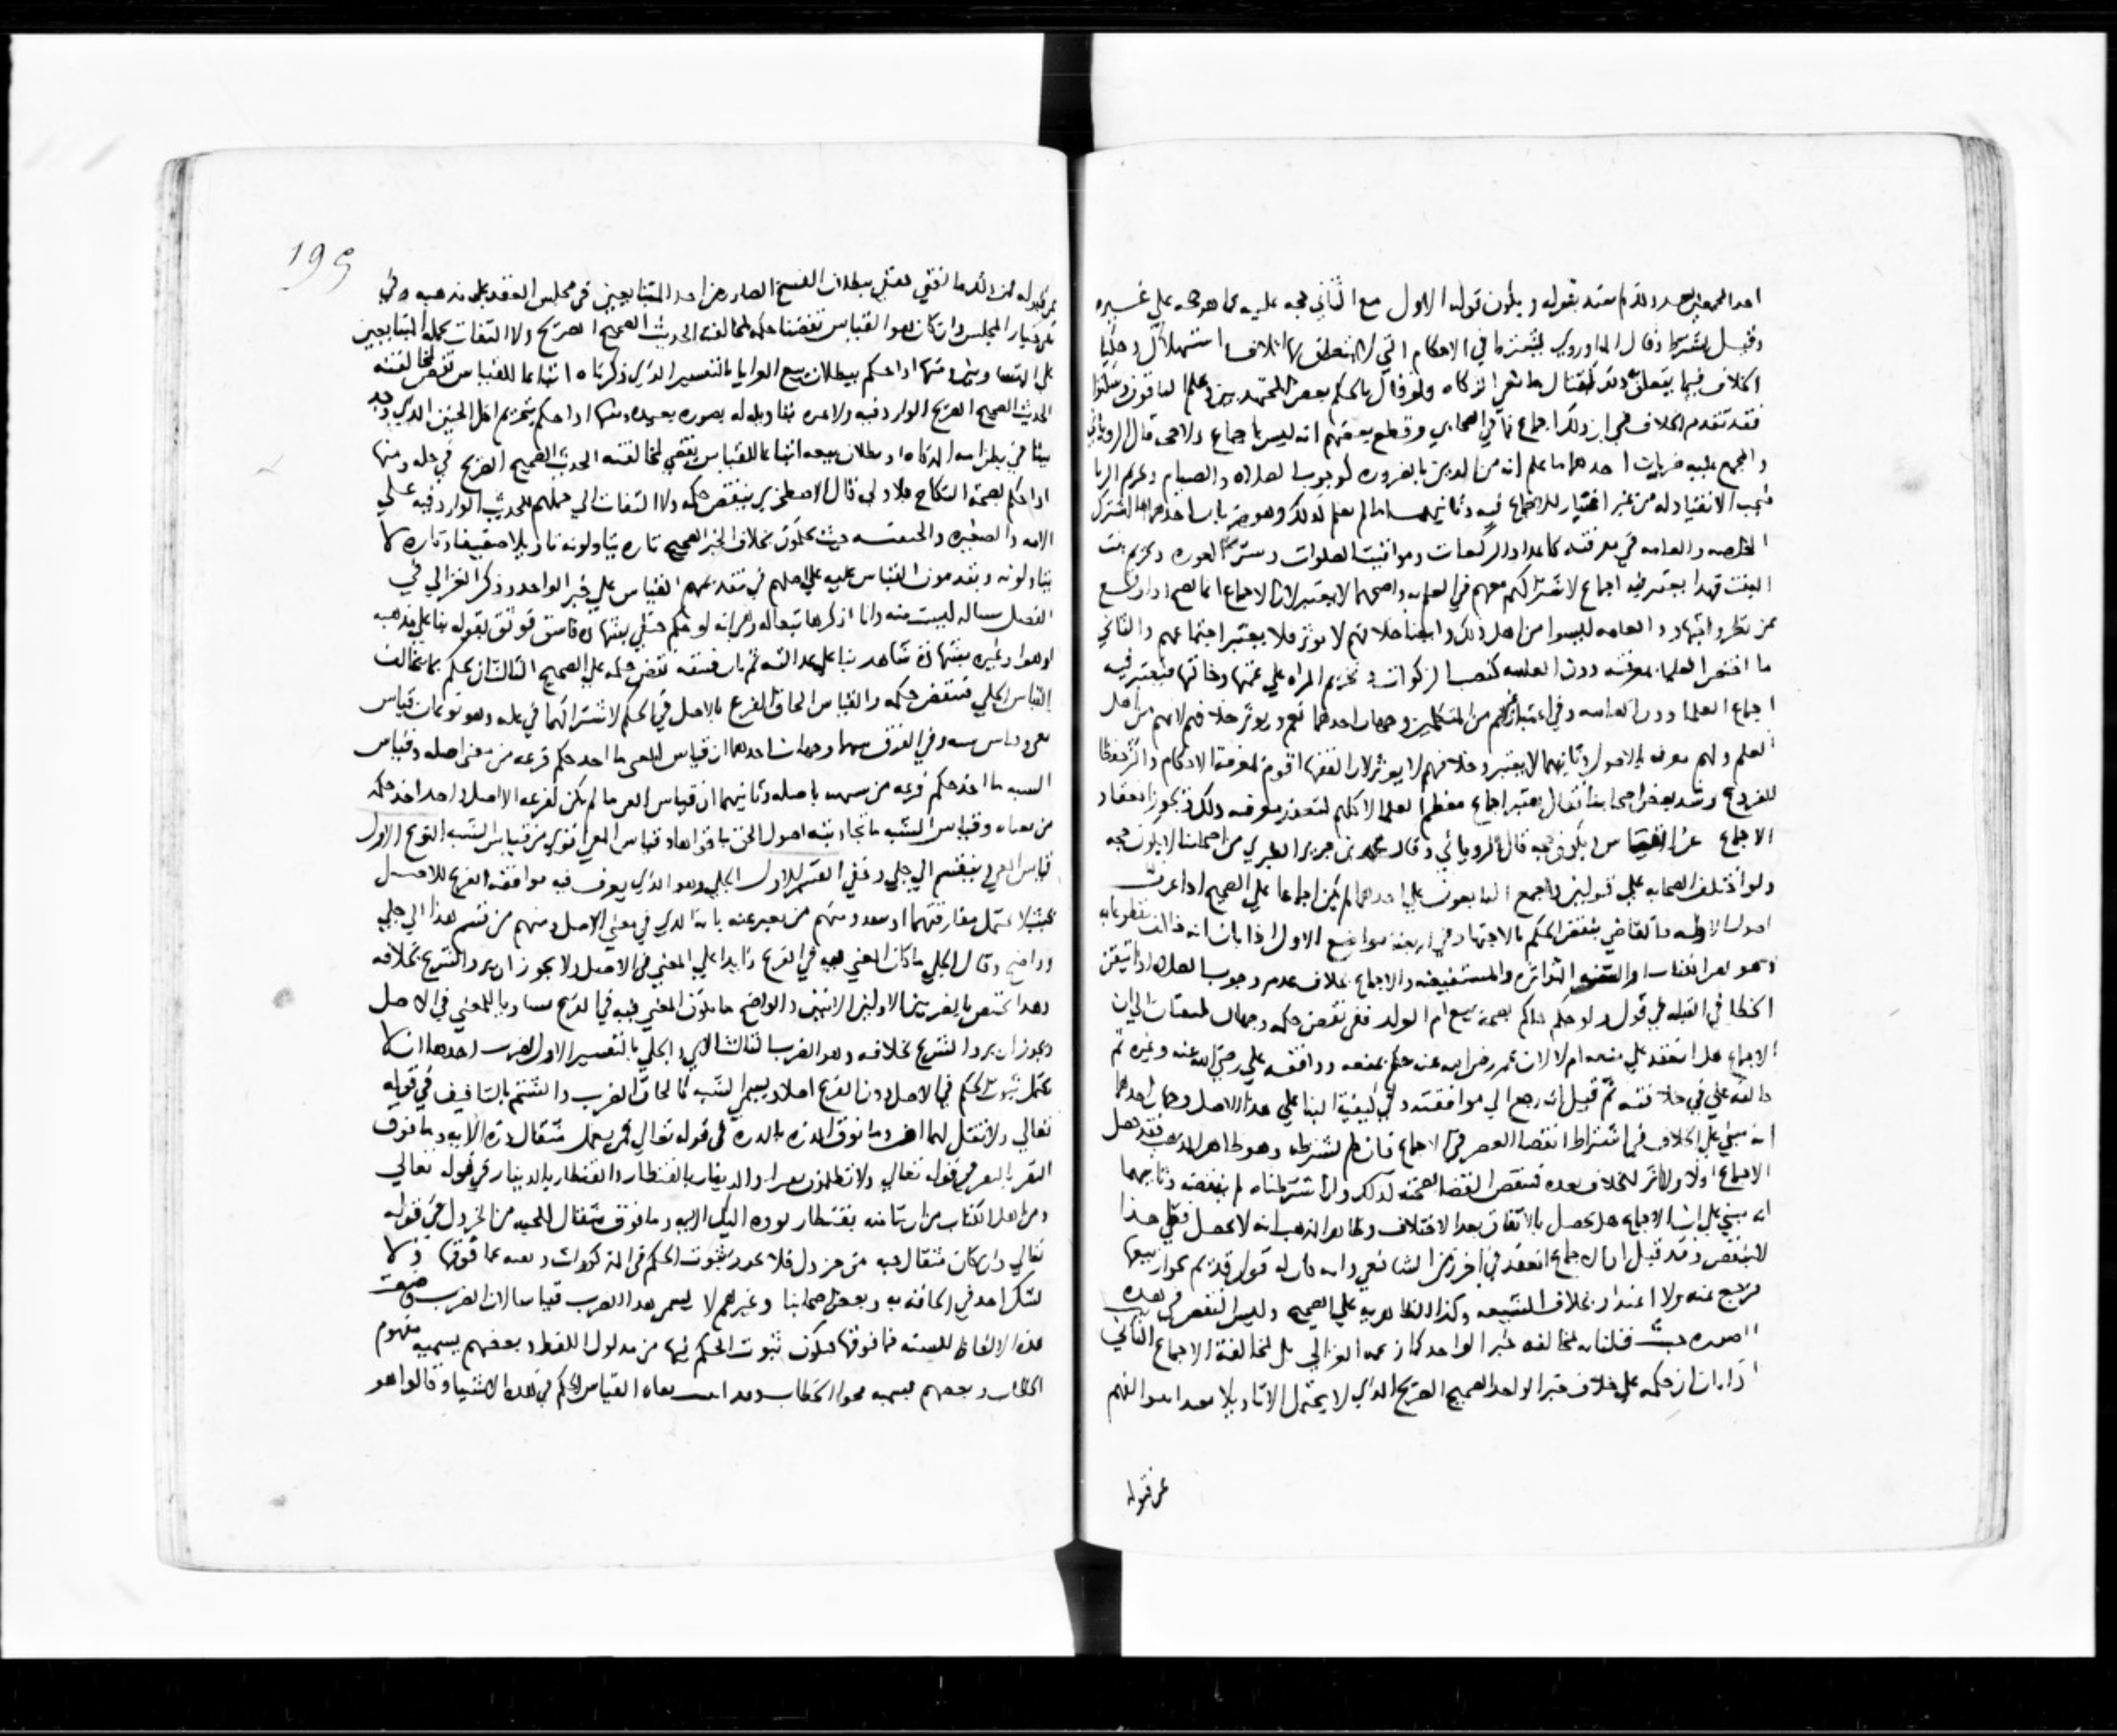 احد المجمعين بعد ذلك لم يعتد بقوله ويكون قوله الاول مع الثاني حجه عليه كما هو حجه علي غيره
وقيل يشترط وقال الماوردي يشترط في الاحكام التي لا يتعلق بها اتلاف استهلاك
الخلاف فيما يتعلق به كقتال مانعي الزكاه ولو قال بالحكم بعض المجتهدين وعلم الباقون وسكتوا
فقد تقدم الخلاف في ان ذلك اجماع وقطع بعضهم انه ليس باجماع ولا حجه قال الروياني
والمجمع عليه ضربان احدهما ما علم انه من الدين بالضروره كوجوب الصلاه والصيام وتحريم الربا
فيجب الانقياد له من غير اعتبار للاجماع فيه وثانيهما ما لم يعلم كذلك وهو ضربان احدهما ما اشترك
الخاصه والعامه في معرفته كاعداد الركعات ومواقيت الصلوات وستر العوره وتحريم بنت
البنت فهذا يعتبر فيه اجماع لاشتراكهم معهم في العلم به واصحهما لا يعتبر لان الاجماع انما يصح اذا وقع
عن نظر واجتهاد والعامه ليسوا من اهل ذلك وايضا خلافهم لا يوثر فلا يعتبر اجماعهم والثاني
ما اختص العلما بمعرفته دون العامه كنصب الزكوات وتحريم المراه علي عمتها وخالتها فيعتبر فيه
اجماع العلما دون العامه وفي اعتبار غيرهم من المتكلمين وجهان احدهما نعم ويوثر خلافهم لانهم من اهل
العلم ولهم معرفه بالاصول وثانيهما لا يعتبر وخلافهم لا يوثر لان الفقها اقوم بمعرفة الاحكام واكثر حفظا
للفروع وشذ بعض اصحابنا فقال يعتبر اجماع معظم العلما لا كلهم لتعذر معرفه ذلك ويجوز انعقاد
الاجماع عن القياس ويكون حجه قال الروياني وقال محمد بن جرير الطبري من اصحابنا لا يكون حجه
ولو اختلف الصحابه علي قولين واجمع التابعون علي احدهما لم يكن اجماعا علي الصحيح اذا عرفت
اصول الادله فالقاضي ينقض الحكم بالاجتهاد في اربعة مواضع الاول اذا بان انه خالف مقطوعا به
وهو نص الكتاب او السنه المتواتره والمستفيضه والاجماع بخلاف عدم وجوب الصلاه اذا تيقن
الخطا في القبله في قول ولو حكم حاكم بصحة بيع ام الولد ففي نقض حكمه وجهان يلتفتان الي ان
الاجماع هل انعقد علي منعه ام لا لان عمر رضي الله عنه حكم بمنعه ووافقه علي رضي الله عنه وغيره ثم
خالفه علي في خلافته ثم قيل انه رجع الي موافقته وفي كيفية البنا علي هذا الاصل وجهان احدهما
انه مبني علي الخلاف في اشتراط انقضا العصر في الاجماع فان لم نشترطه وهو ظاهر المذهب فقد حصل
الاجماع اولا ولا اثر للخلاف بعده فينقض القضا بصحته كذلك وان اشترطناه لم ينقضه وثانيهما
انه مبني علي ان الاجماع هل يحصل بالاتفاق بعد الاختلاف وظاهر المذهب انه لا يحصل فعلي هذا
لا ينقض وقد قيل ان الاجماع انعقد في اخر زمن الشافعي وانه كان له قول قديم بجواز بيعها
فرجع عنه ولا اعتداد بخلاف الشيعه وكذا الظاهريه علي الصحيح وليس النقض في هذه
الصوره حيث قلنا به لمخالفه خبر الواحد كما زعمه الغزالي بل لمخالفة الاجماع الثاني
اذا بان ان حكمه علي خلاف خبر الواحد الصحيح الصريح الذي لا يحتمل الا تاويلا بعيدا ينبو الفهم
عن قبوله
199
عن قبوله فمن ذلك ما لو قضي حنفي ببطلان الفسخ الصادر من احد المتبايعين في مجلس العقد علي مذهبه في
نفي خيار المجلس وان كان هو القياس نقضنا حكمه لمخالفته الحديث الصحيح الصريح ولا التفات لحمله المتبايعين
علي المتساومين ومنها اذا حكم ببطلان بيع العرايا بالتفسير الذي ذكرناه اتباعا للقياس نقض لمخالفته
الحديث الصحيح الصريح الوارد فيه ولا عبره بتاويله له بصوره بعيده ومنها اذا حكم بتحريم اكل الجنين الذي وجد
ميتا في بطن امه المذكاه او بطلان بيعه اتباعا للقياس نقض لمخالفته الحديث الصحيح الصريح في حله ومنها
اذا حكم بصحة النكاح بلا ولي قال الاصطخري ينتقض حكمه ولا التفات الي حملهم للحديث الوارد فيه علي
الامه والصغيره والحنفيه حيث يحكمون بخلاف الخبر الصحيح تاره يتاولونه تاويلا ضعيفا وتاره لا
يتاولونه ويقدمون القياس عليه علي اصلهم في تقديمهم القياس علي خبر الواحد وذكر الغزالي في
الفصل مساله ليست منه وانا اذكرها تبعا له وهي انه لو حكم حنفي بشهادة فاسق قوثق بقوله بنا علي مذهبه
او هو او غيره بشهادة شاهد بنا علي عدالته ثم بان فسقه نقض حكمه علي الصحيح الثالث ان يحكم بما يخالف
القياس الجلي فينقض حكمه والقياس الحاق الفرع بالاصل في الحكم لاشتراكهما في عله وهو نوعان قياس
معني وقياس شبه وفي الفرق بينهما وجهان احدهما ان قياس المعني ما اخذ حكم فرعه من معني اصله وقياس
الشبه ما اخذ حكم فرعه من شبهه باصله وثانيهما ان قياس المعني ما لم يكن لفرعه الا اصل واحد اخذ حكمه
من معناه وقياس الشبه ما تجاذبته اصول الحق باقواها وقياس المعني اقوي من قياس الشبه النوع الاول
قياس المعني وينقسم الي جلي وخفي القسم الاول الجلي وهو الذي يعرف فيه موافقة الفرع للاصل
بحيث لا يحتمل مفارقتهما او يبعد ومنهم من يعبر عنه بانه الذي في معني الاصل ومنهم من قسم هذا الي جلي
وواضح وقال الجلي ما كان المعني فيه في الفرع زايدا علي المعني في الاصل ولا يجوز ان يرد الشرع بخلافه
وهذا يختص بالضربين الاولين الاتيين والواضح ما يكون المعني فيه في الفرع مساويا للمعني في الاصل
ويجوز ان يرد الشرع بخلافه وهو الضرب الثالث الاتي والجلي بالتفسير الاول اضرب احدها ان لا
يحتمل ثبوت الحكم في الاصل دون الفرع اصلا ويسمي الشبه كالحاق الضرب والشتم بالتافيف في قوله
تعالي ولا تقل لهما اف وما فوق الذره بالذرة في قوله تعالي فمن يعمل مثقال ذره الايه وما فوق
النقير بالنقير في قوله تعالي ولا تظلمون نقيرا والدينار بالقنطار والقنطار بالدينار في قوله تعالي
ومن اهل الكتاب من ان تامنه بقنطار يوده اليك الايه وما فوق مثقال الحبه من الخردل في قوله
تعالي وان كان مثقال حبه من خردل فلا يجوز ثبوت الحكم في المذكورات ونفيه عما فوقها ولا
يشك احد في الحاقه به وبعض اصحابنا وغيرهم لا يسمي هذا الضرب قياسا لان العرب وضعت
هذه الالفاظ للتنبيه فما فوقها فيكون ثبوت الحكم فيها من مدلول اللفظ وبعضهم يسميه مفهوم
الخطاب وبعضهم يسميه فحوا الخطاب وقد اثبت نفاه القياس الحكم في هذه الاشيا وقالوا هو